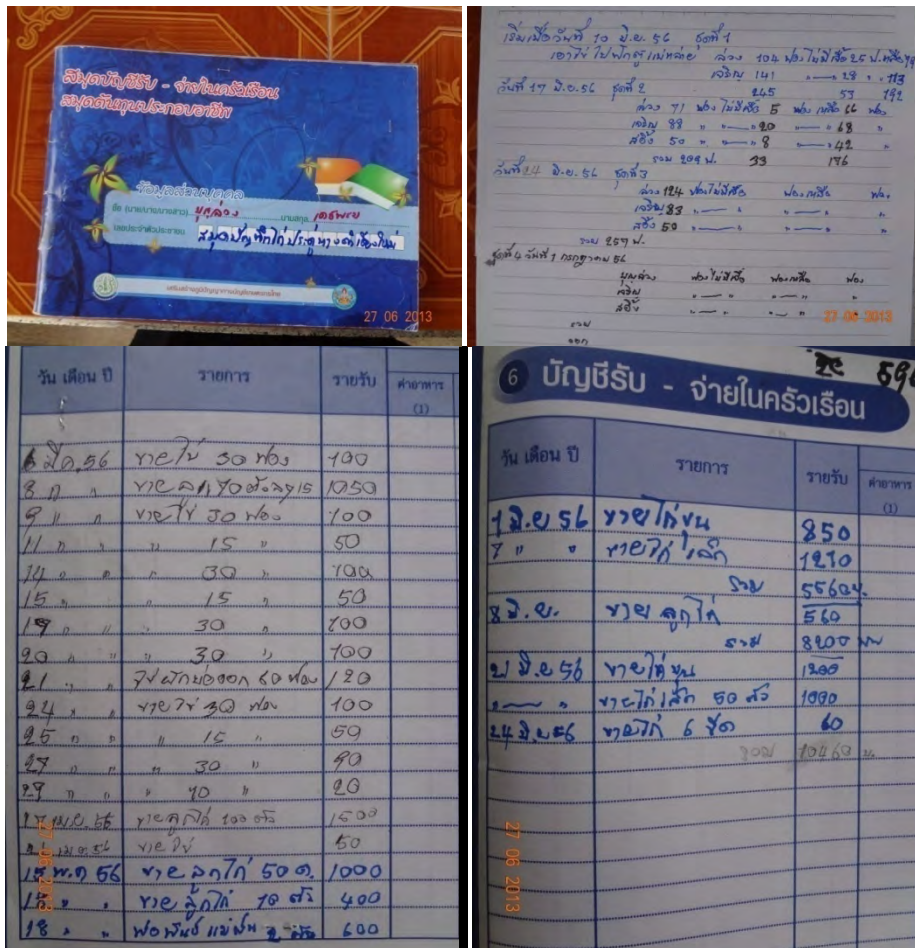 สมุดบัญชีรับ - จ่ายในครัวเรือน
สมุดต้นทุนประกอบอาชีพ
ข้อมูลส่วนบุคคล
ชื่อ (นาย/นาง/นางสาว) บุญล่วง นามสกุล
เลขประจำตัวประชาชน
สมุดบันทึกไก่ประดู่หางดำเชียงใหม่
27 06 2013
เริ่มเมื่อวันที่ 10 มิ.ย. 56 ชุดที่ 1
เอาไข่ไปฟักตู้แม่หล่าย ล่วง 104 ฟองไม่มีเชื้อ 25 ฟ. เหลือ 79
เจริญ 141 " 28 " 113
245 53 192
วันที่ 17 มิ.ย. 56 ชุดที่ 2
ล่วง 71 ฟอง ไม่มีเชื้อ 5 ฟอง เหลือ 66 ฟอง
เจริญ 88 " " 20 " 68 "
50 " " 8 " 42 "
รวม 209 ฟ. 33 176
วันที่ 24 มิ.ย. 56 ชุดที่ 3
ล่วง 124 ฟองไม่มีเชื้อ ฟองเหลือ ฟอง
เจริญ 83 " " " "
50 " " " "
รวม 257 ฟ.
ชุดที่ 4 วันที่ 1 กรกฎาคม 56
บุญล่วง ฟองไม่มีเชื้อ ฟองเหลือ ฟอง
เจริญ " " " "
" " " "
รวม
27 06 2013
วัน เดือน ปี รายการ รายรับ ค่าอาหาร
(1)
6 มีค. 56 ขายไข่ 30 ฟอง 100
8 " " ขายลูก 70 ตัวละ 15 1050
9 " " ขายไข่ 30 ฟอง 100
11 " " " 15 " 50
14 " " " 30 " 100
15 " " 15 " 50
19 " " " 30 " 100
20 " " " 30 " 100
21 " " 60 ฟอง 120
24 " " ขายไข่ 30 ฟอง 100
25 " " " 15 " 50
27 " " " 30 " 90
29 " " " 10 " 20
เม.ย. 56 ขายลูกไก่ 100 ตัว 1500
56 ขายไข่ 50
15 พ.ค 56 ขายลูกไก่ 50 ต. 1000
15 " " ขายลูกไก่ 10 ตัว 400
18 " " พ่อพันธ์ แม่พัน 2 ตัว 600
27 06 2013
6 บัญชีรับ - จ่ายในครัวเรือน
วัน เดือน ปี รายการ รายรับ ค่าอาหาร
(1)
1 มิ.ย 56 ขายไก่ขุน 850
7 " " ขายไก่เล็ก 1210
รวม 5560 บ.
8 มิ.ย. ขายลูกไก่ 560
รวม 8200 บาท
มิ.ย 56 ขายไก่ขุน 1200
" ขายไก่เล็ก 50 ตัว 1000
24 มิ.ย 56 ขายไก่ 6 ขีด 60
รวม 10460 บ.
27 06 2013